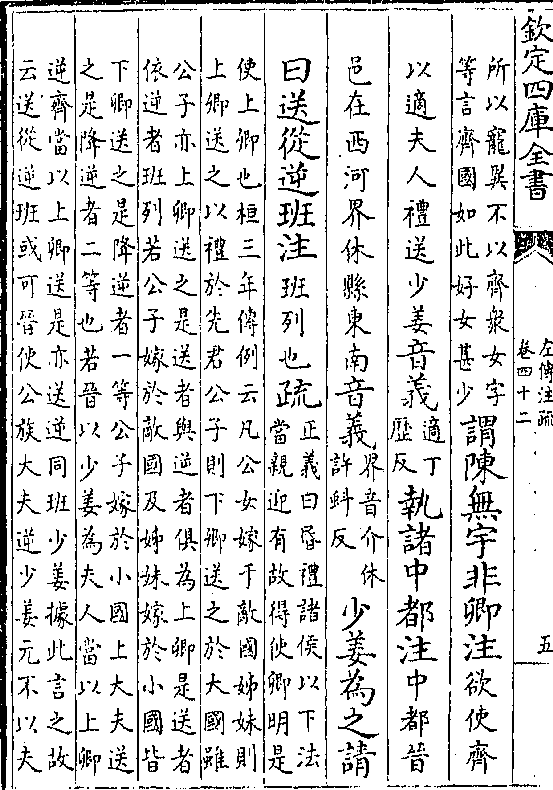 欽定四庫全書
左傳注疏
卷四十二
五
所以寵異不以齊衆女字
等言齊國如此好女甚少
謂陳無宇非卿注欲使齊
以適夫人禮送少姜音義
適丁
歴反
執諸中都注中都晉
邑在西河界休縣東南音義
界音介休
許蚪反
少姜為之請
曰送從逆班注班列也疏
正義曰昏禮諸侯以下法
當親迎有故得使卿明是
使上卿也桓三年傳例云凡公女嫁于敵國姊妹則
上卿送之以禮於先君公子則下卿送之於大國雖
公子亦上卿送之是送者與逆者俱為上卿是送者
依逆者班列若公子嫁於敵國及姊妹嫁於小國皆
下卿送之是降逆者一等公子嫁於小國上大夫送
之是降逆者二等也若晉以少姜為夫人當以上卿
逆齊當以上卿送是亦送逆同班少姜據此言之故
云送從逆班或可晉使公族大夫逆少姜元不以夫